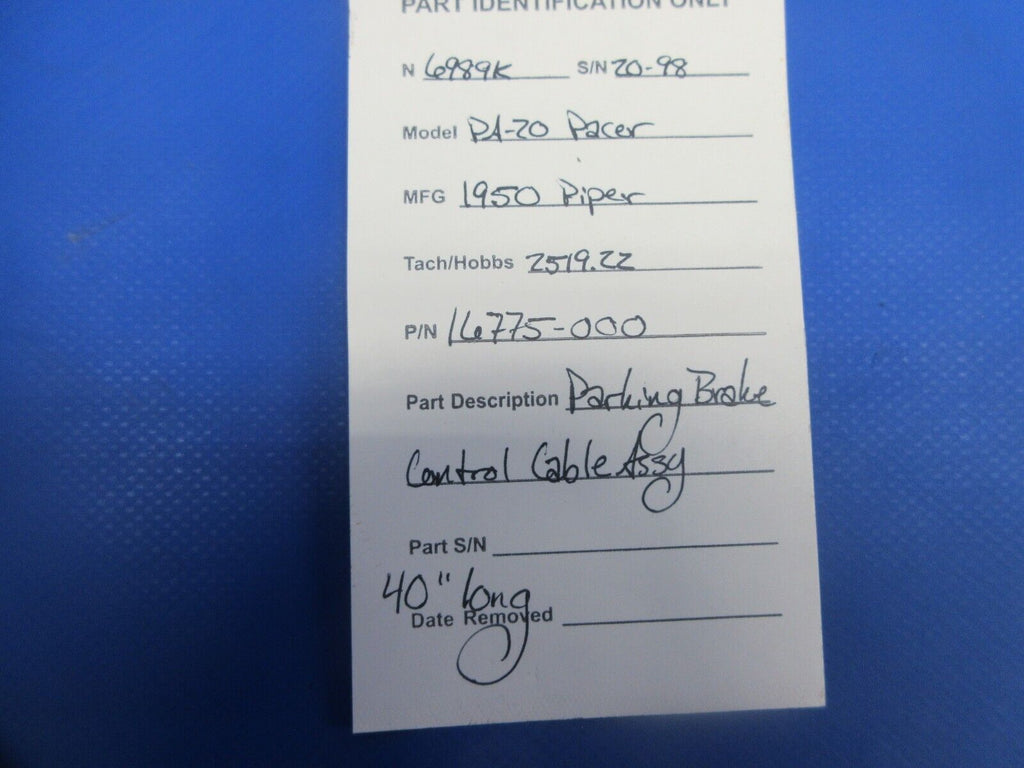 PART IDENTIFICATION ONLY
N 6989K S/N 20-98
Model PA-20 Pacer
MFG 1950 Piper
Tach/Hobbs 2519.22
P/N 16775-000
Part Description Parking Brake
Control Cable Assy
Part S/N
40" long
Date Removed